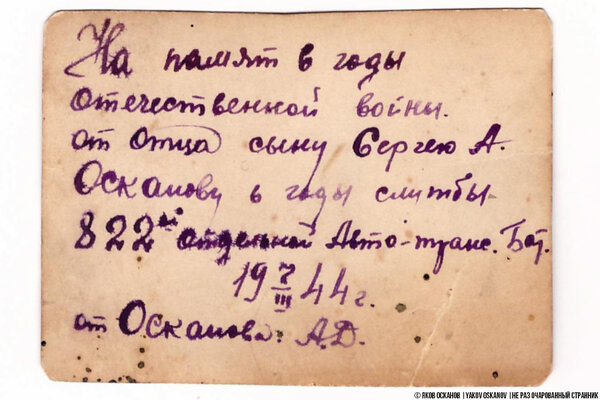 На памят в годы
отечественной войны.
от отца сыну Сергею А.
Осканову в годы слитбы
822ий отдельной Авто-транс. Бат.
19 7/III 44 г.
от Осканова. А.Д.
© ЯКОВ ОСКАНОВ | YAKOV OSKANOV | НЕ РАЗ ОЧАРОВАННЫЙ СТРАННИК